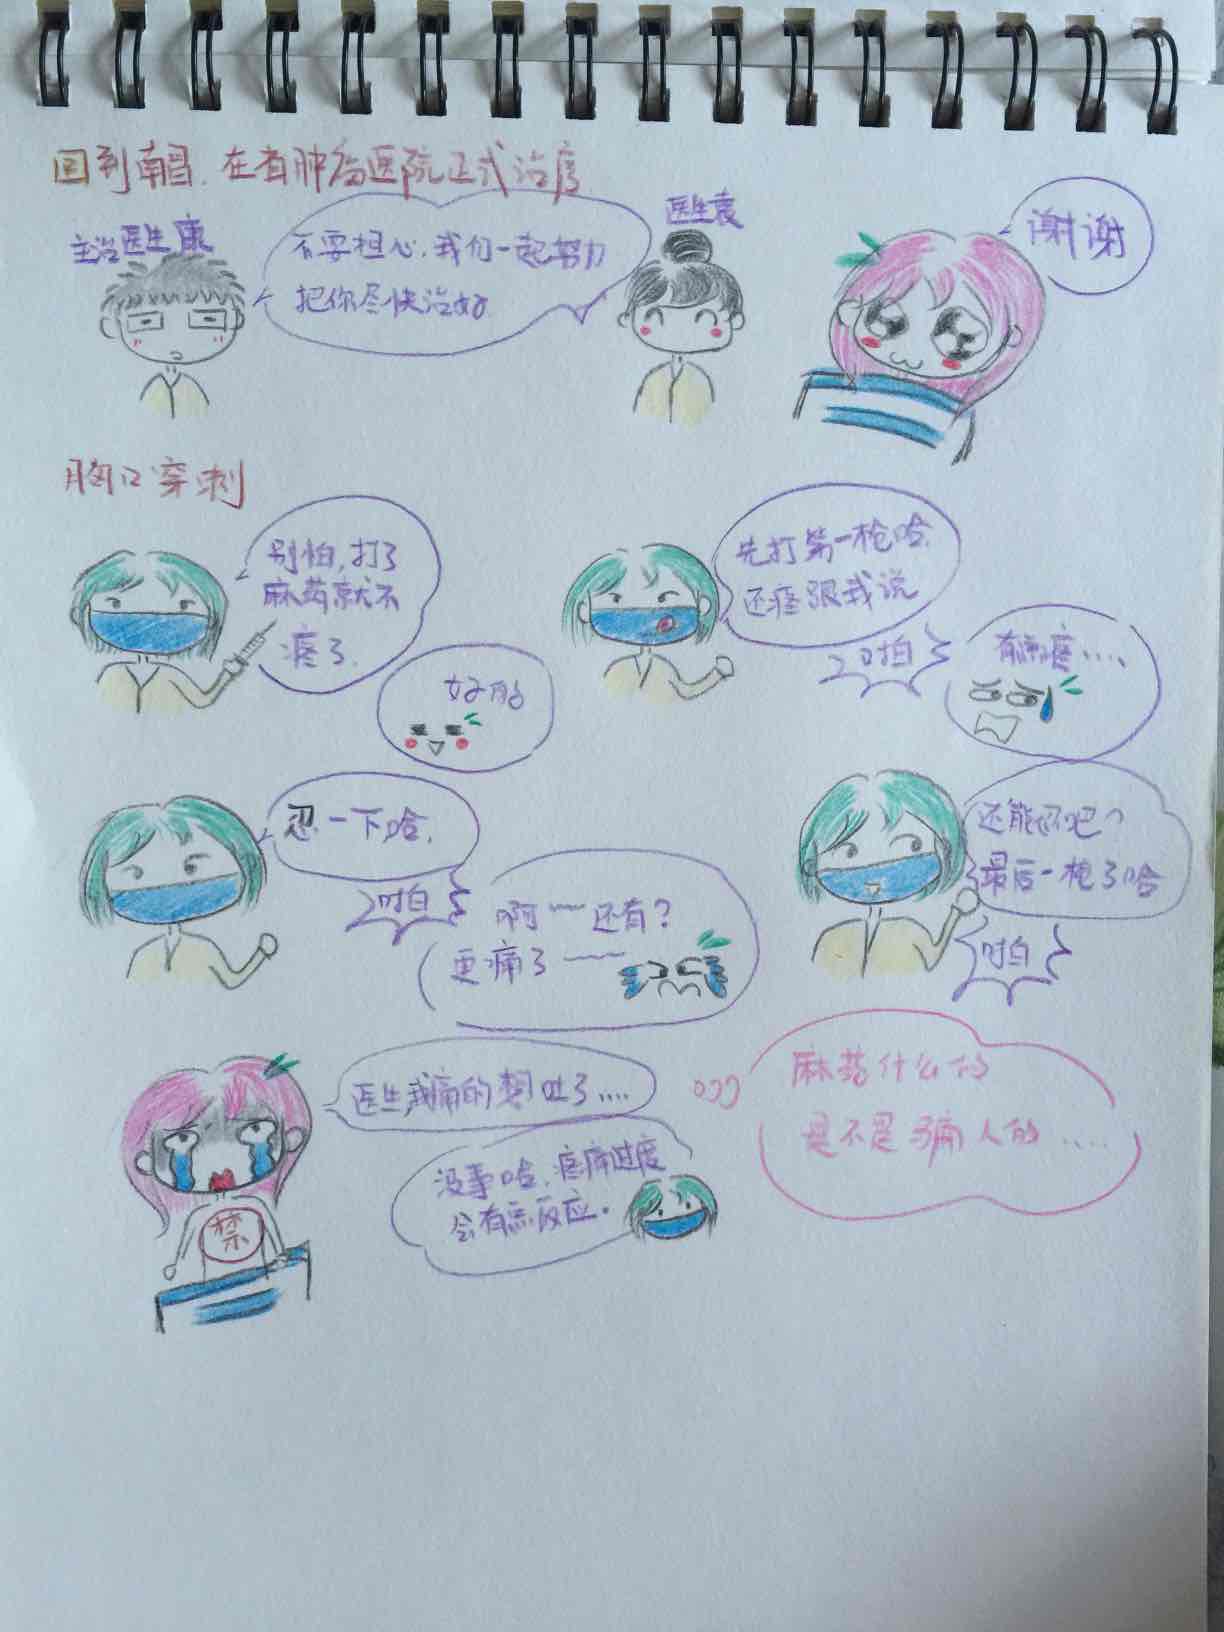 回到南昌.在省肿瘤医院正式治疗
主治医生康
不要担心,我们一起努力
把你尽快治好
医生袁
谢谢
胸口穿刺
别怕,打了
麻药就不
疼了.
好的
先打第一枪哈.
还疼跟我说
啪
有点疼....
忍一下哈.
啪
啊~~还有?
更痛了~~~
还能忍吧?
最后一枪了哈
啪
医生我痛的想吐了....
没事哈,疼痛过度
会有点反应.
禁
麻药什么的
是不是骗人的.....